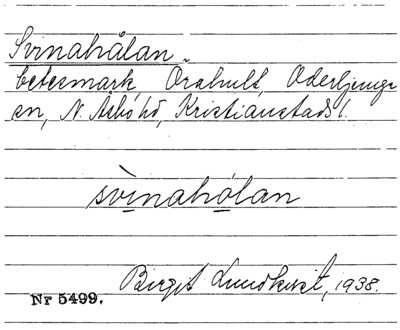 Svinahålan
betesmark, Örahult, Oderljunga
sn, N. Åsbo hd, Kristianstads l.
svìnahólan
Birgit Lundkvist, 1938.
Nr 5499.